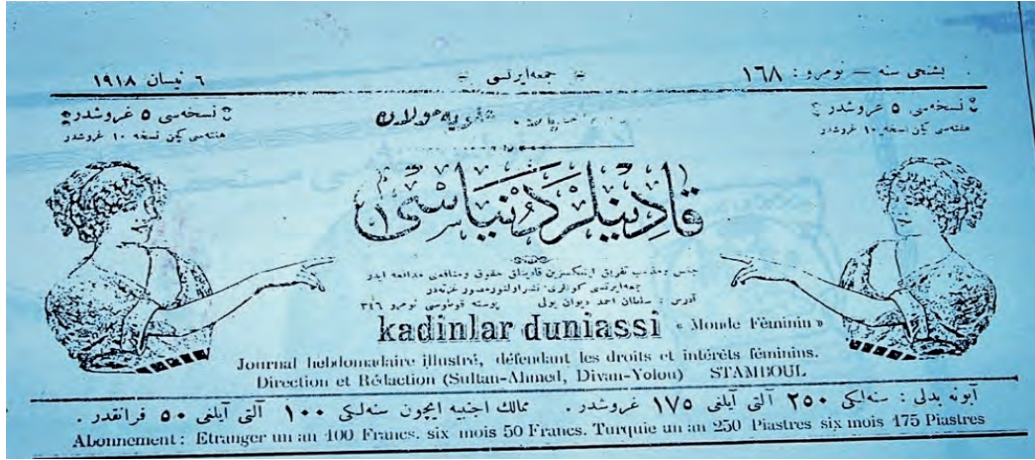 بشنجی سنه — نومرو : ١٦٨
جمعه‌ ایرتسی
٦ نیسان ١٩١٨
نسخه‌سی ٥ غروشدر
هفته‌سی کچن نسخه ١٠ غروشدر
نسخه‌سی ٥ غروشدر
هفته‌سی کچن نسخه ١٠ غروشدر
قادینلر دنیاسی
جنس ومذهب تفریق ایتمکسزین قادینلق حقوق ومنافعنی مدافعه ایدر
جمعه‌ایرتسی کونلری نشر اولنور مصور غزته‌در
آدرس : سلطان احمد دیوان یولی پوسته قوطوسی نومرو ٣٤٦
kadinlar duniassi « Monde Féminin »
Journal hebdomadaire illustré, défendant les droits et intérêts féminins.
Direction et Rédaction (Sultan-Ahmed, Divan-Yolou) STAMBOUL
آبونه بدلی : سنه‌لکی ٢٥٠ آلتی آیلغی ١٧٥ غروشدر . ممالك اجنبیه ایچون سنه‌لکی ١٠٠ آلتی آیلغی ٥٠ فرانقدر .
Abonnement : Etranger un an 100 Francs. six mois 50 Francs. Turquie un an 250 Piastres six mois 175 Piastres